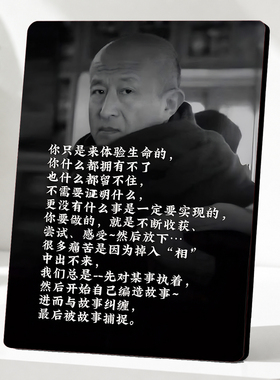 你只是来体验生命的，
你什么都拥有不了
也什么都留不住，
不需要证明什么，
更没有什么事是一定要实现的，
你要做的，就是不断收获、
尝试、感受~然后放下…
很多痛苦是因为掉入“相”
中出不来，
我们总是--先对某事执着，
然后开始自己编造故事~
进而与故事纠缠，
最后被故事捕捉。